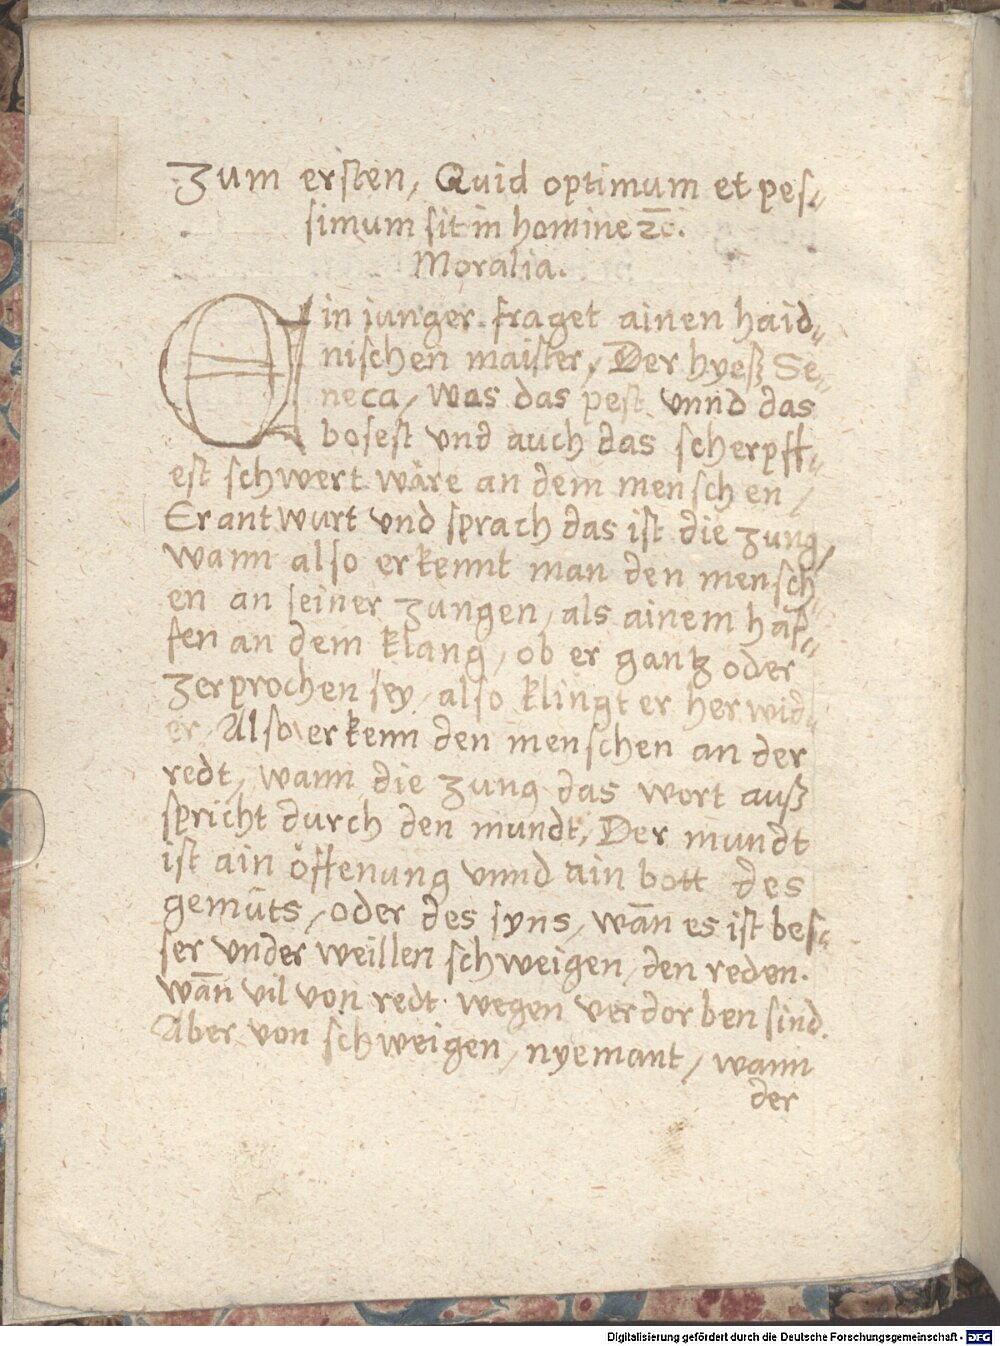 Zum ersten, Quid optimum et pes-
simum sit in homine ꝛc̄.
Moralia.
Ein junger fraget ainen haid-
nischen maister, Der hyesz Se-
neca, Was das pest unnd das
bosest vnd auch das scherpff-
est schwert wäre an dem menschen /
Er antwurt vnd sprach das ist die zung,
wann also erkennt man den mensch-
en an seiner zungen, als ainem haf-
fen an dem klang, ob er gantz oder
zerprochen sey, also klingt er herwid-
er, Also erkenn den menschen an der
redt, wann die zung das wort ausz
spricht durch den mundt, Der mundt
ist ain öffenung vnnd ain bott des
gemüts, oder des syns, wān es ist bes-
ser vnder weillen schweigen, den reden.
wān vil von redt wegen verdorben sind.
Aber von schweigen, nyemant, wann
der
Digitalisierung gefördert durch die Deutsche Forschungsgemeinschaft - DFG